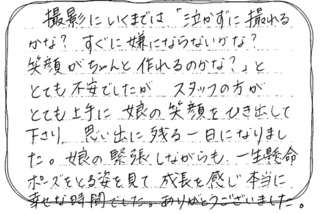 撮影にいくまでは「泣かずに撮れる
かな？ すぐに嫌にならないかな？
笑顔がちゃんと作れるのかな？」と
とても不安でしたが スタッフの方が
とても上手に 娘の笑顔をひき出して
下さり 思い出に残る一日になりまし
た。娘の緊張しながらも、一生懸命
ポーズをとる姿を見て 成長を感じ 本当に
幸せな時間でした。ありがとうございました。